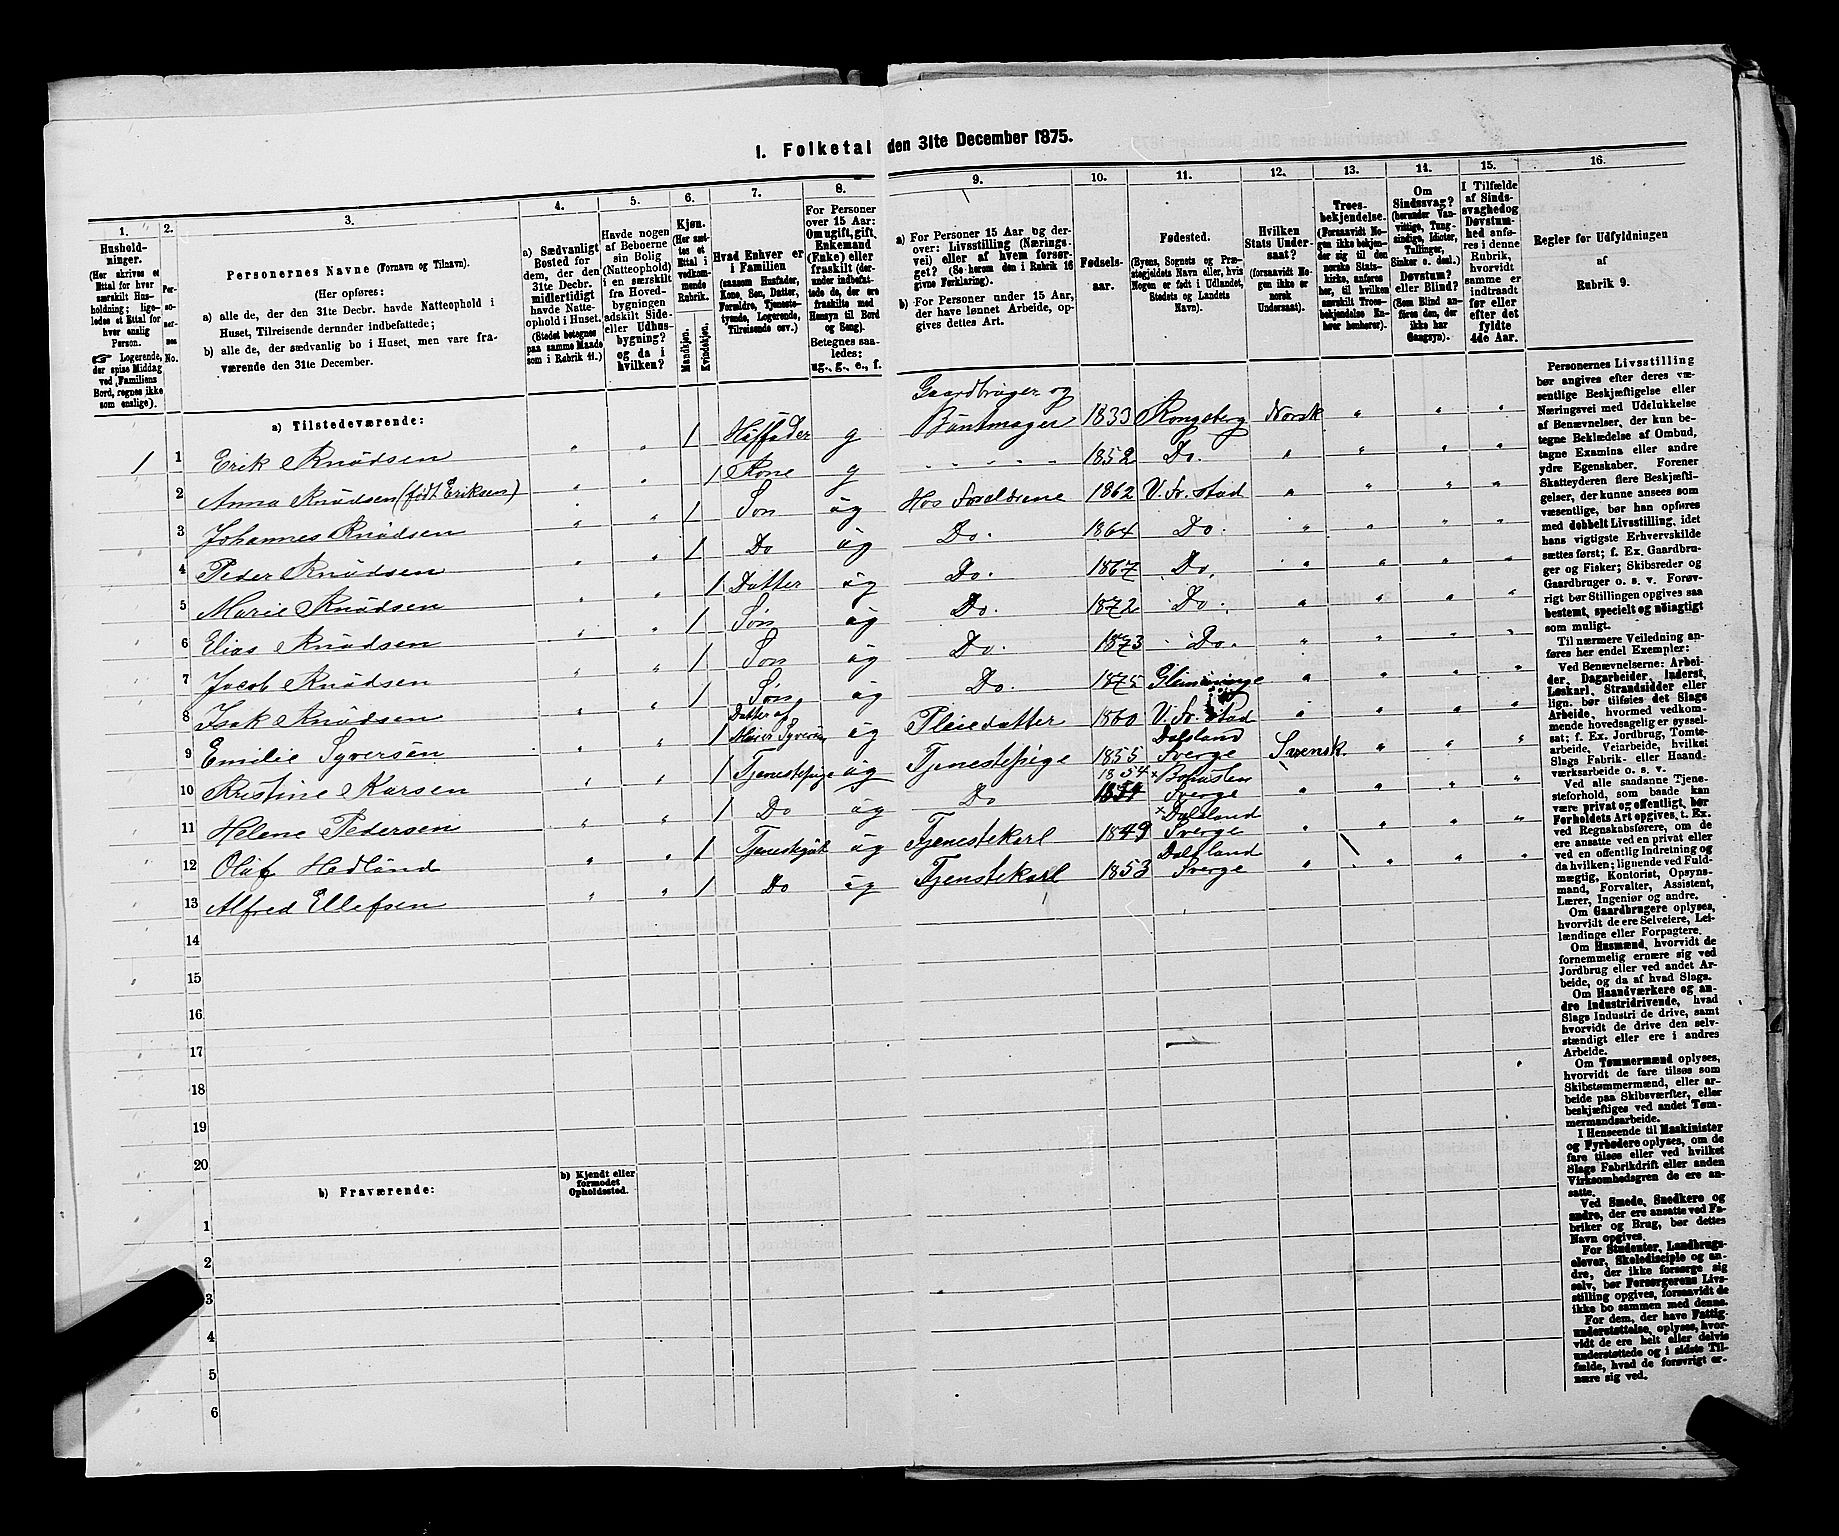 1. Folketal den 31te December 1875.
1. 2. 3. 4. 5. 6. 7. 8. 9. 10. 11. 12. 13. 14. 15. 16.
Hushold-
ninger.
(Her skrives et
Ettal for hver
særskilt Hus-
holdning; lige-
ledes et Ettal for
hver enslig
Person.
☞ Logerende,
der spise Middag
ved Familiens
Bord, regnes ikke
som enslige).
Per-
so-
ner-
nes
No.
Personernes Navne (Fornavn og Tilnavn).
(Her opføres:
a) alle de, der den 31te Decbr. havde Natteophold i
Huset, Tilreisende derunder indbefattede;
b) alle de, der sædvanlig bo i Huset, men vare fra-
værende den 31te December.
a) Sædvanligt
Bosted for
dem, der den
31te Decbr.
midlertidigt
havde Natte-
ophold i Huset.
(Stedet betegnes
paa samme Maade
som i Rubrik 11.)
Havde nogen
af Beboerne
sin Bolig
(Natteophold)
i en særskilt
fra Hoved-
bygningen
adskilt Side-
eller Udhus-
bygning?
og da i
hvilken?
Kjøn.
(Her sæt-
tes et
Ettal i
vedkom-
mende
Rubrik.
Mandkjøn.
Kvindekjøn.
Hvad Enhver er
i Familien
(saasom Husfader,
Kone, Søn, Datter,
Forældre, Tjeneste-
tyende, Logerende,
Tilreisende osv.)
For Personer
over 15 Aar:
Om ugift, gift,
Enkemand
(Enke) eller
fraskilt (der-
under indbefat-
tede de, der ere
fraskilte med
Hensyn til Bord
og Seng).
Betegnes saa-
ledes:
ug., g., e., f.
a) For Personer 15 Aar og der-
over: Livsstilling (Nærings-
vei) eller af hvem forsør-
get? (Se herom den i Rubrik 16
givne Forklaring).
b) For Personer under 15 Aar,
der have lønnet Arbeide, op-
gives dettes Art.
Fødsels-
aar.
Fødested.
(Byens, Sognets og Præ-
stegjeldets Navn eller, hvis
Nogen er født i Udlandet,
Stedets og Landets
Navn).
Hvilken
Stats Under-
saat?
(forsaavidt No-
gen ikke er
norsk
Undersaat).
Troes-
bekjendelse.
(Forsaavidt No-
gen ikke bekjen-
der sig til den
norske Stats-
kirke, anføres
her, til hvilken
særskilt Troes-
bekjendelse En-
hver henhører).
Om
Sindssvag?
(herunder Van-
vittige, Tung-
sindige, Idioter,
Tullinger,
Sinker o. desl.)
Døvstum?
eller Blind?
(Som Blind an-
føres den, der
ikke har
Gangsyn).
I Tilfælde
af Sinds-
svaghed og
Døvstum-
hed anfø-
res i denne
Rubrik,
hvorvidt
samme er
indtraadt
før eller
efter det
fyldte
4de Aar.
Regler for Udfyldningen
af
Rubrik 9.
a) Tilstedeværende:
1 1 Erik Knudsen " " 1 Husfader g Gaardbruger og Buntmager 1833 Kongsberg Norsk " " "
2 Anna Knudsen (født Eriksen) " " 1 Kone g 1852 Do. " " " "
3 Johannes Knudsen " " 1 Søn ug Hos Forældrene 1862 V. Fr. stad " " " "
4 Peder Knudsen " " 1 Do ug Do. 1864 Do. " " " "
5 Marie Knudsen " " 1 Datter ug Do. 1867 Do. " " " "
6 Elias Knudsen " " 1 Søn ug Do. 1872 Do. " " " "
7 Jacob Knudsen " " 1 Søn ug Do. 1873 Do. " " " "
8 Isak Knudsen " " 1 Søn ug Do. 1875 " " " "
9 Emilie Syversen " " 1 Datter af Syversen ug Pleiedatter 1860 V. Fr. stad " " " "
10 Kristine Karsen " " 1 Tjenestepige ug Tjenestepige 1855 Dalsland Sverge Svensk " " "
11 Helene Pedersen " " 1 Do ug Do 1854 Sverge " " " "
12 Oluf Hedlund " " 1 ug Tjenestekarl 1849 Dalsland Sverge " " "
13 Alfred Ellefsen " " 1 Do ug Tjenstekarl 1853 Dalsland Sverge " " " "
14
15
16
17
18
19
20
b) Fraværende:
b) Kjendt eller
formodet
Opholdssted.
1
2
3
4
5
6
Personernes Livsstilling
bør angives efter deres væ-
sentlige Beskjæftigelse eller
Næringsvei med Udelukkelse
af Benævnelser, der kun be-
tegne Beklædelse af Ombud,
tagne Examina eller andre
ydre Egenskaber. Forener
Skatteyderen flere Beskjæfti-
gelser, der kunne ansees som
væsentlige, bør han opføres
med dobbelt Livsstilling, idet
hans vigtigste Erhvervskilde
sættes først; f. Ex. Gaardbru-
ger og Fisker; Skibsreder og
Gaardbruger o. s. v. Forøv-
rigt bør Stillingen opgives saa
bestemt, specielt og nøiagtigt
som muligt.
Til nærmere Veiledning an-
føres her endel Exempler:
Ved Benævnelserne: Arbei-
der, Dagarbeider, Inderst,
Løskarl, Strandsidder eller
lign. bør tilføies det Slags
Arbeide, hvormed vedkom-
mende hovedsagelig er syssel-
sat; f. Ex. Jordbrug, Tomte-
arbeide, Veiarbeide, hvilket
Slags Fabrik- eller Haand-
værksarbeide o. s. v.
Ved alle saadanne Tjene-
steforhold, som baade kan
være privat og offentligt, bør
Forholdets Art opgives, t. Ex.
ved Regnskabsførere, om de
ere ansatte ved en privat eller
ved en offentlig Indretning og
da hvilken; lignende ved Fuld-
mægtig, Kontorist, Opsyns-
mand, Forvalter, Assistent,
Lærer, Ingeniør og andre.
Om Gaardbrugere oplyses,
hvorvidt de ere Selveiere, Lei-
lændinge eller Forpagtere.
Om Husmænd, hvorvidt de
fornemmelig ernære sig ved
Jordbrug eller ved andet Ar-
beide, og da af hvad Slags.
Om Haandværkere og an-
dre Industridrivende, hvad
Slags Industri de drive, samt
hvorvidt de drive den selv-
stændigt eller ere i andres
Arbeide.
Om Tømmermænd oplyses,
hvorvidt de fare tilsøs som
Skibstømmermænd, eller ar-
beide paa Skibsværfter, eller
beskjæftiges ved andet Tøm-
mermandsarbeide.
I Henseende til Maskinister
og Fyrbødere oplyses, om de
fare tilsøs eller ved hvilket
Slags Fabrikdrift eller anden
Virksomhedsgren de ere an-
satte.
Ved Smede, Snedkere og
andre, der ere ansatte ved Fa-
briker og Brug, bør dettes
Navn opgives.
For Studenter, Landbrugs-
elever, Skoledisciple og an-
dre, der ikke forsørge sig
selv, bør Forsørgerens Livs-
stilling opgives, forsaavidt de
ikke bo sammen med denne.
For dem, der have Fattig-
understøttelse, oplyses, hvor-
vidt de ere helt eller delvis
understøttede og i sidste Til-
fælde, hvad de forøvrigt er-
nære sig ved.